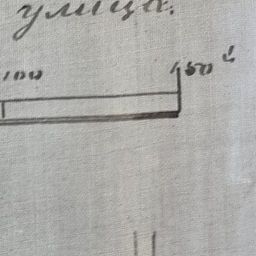 улица.
100 150 й